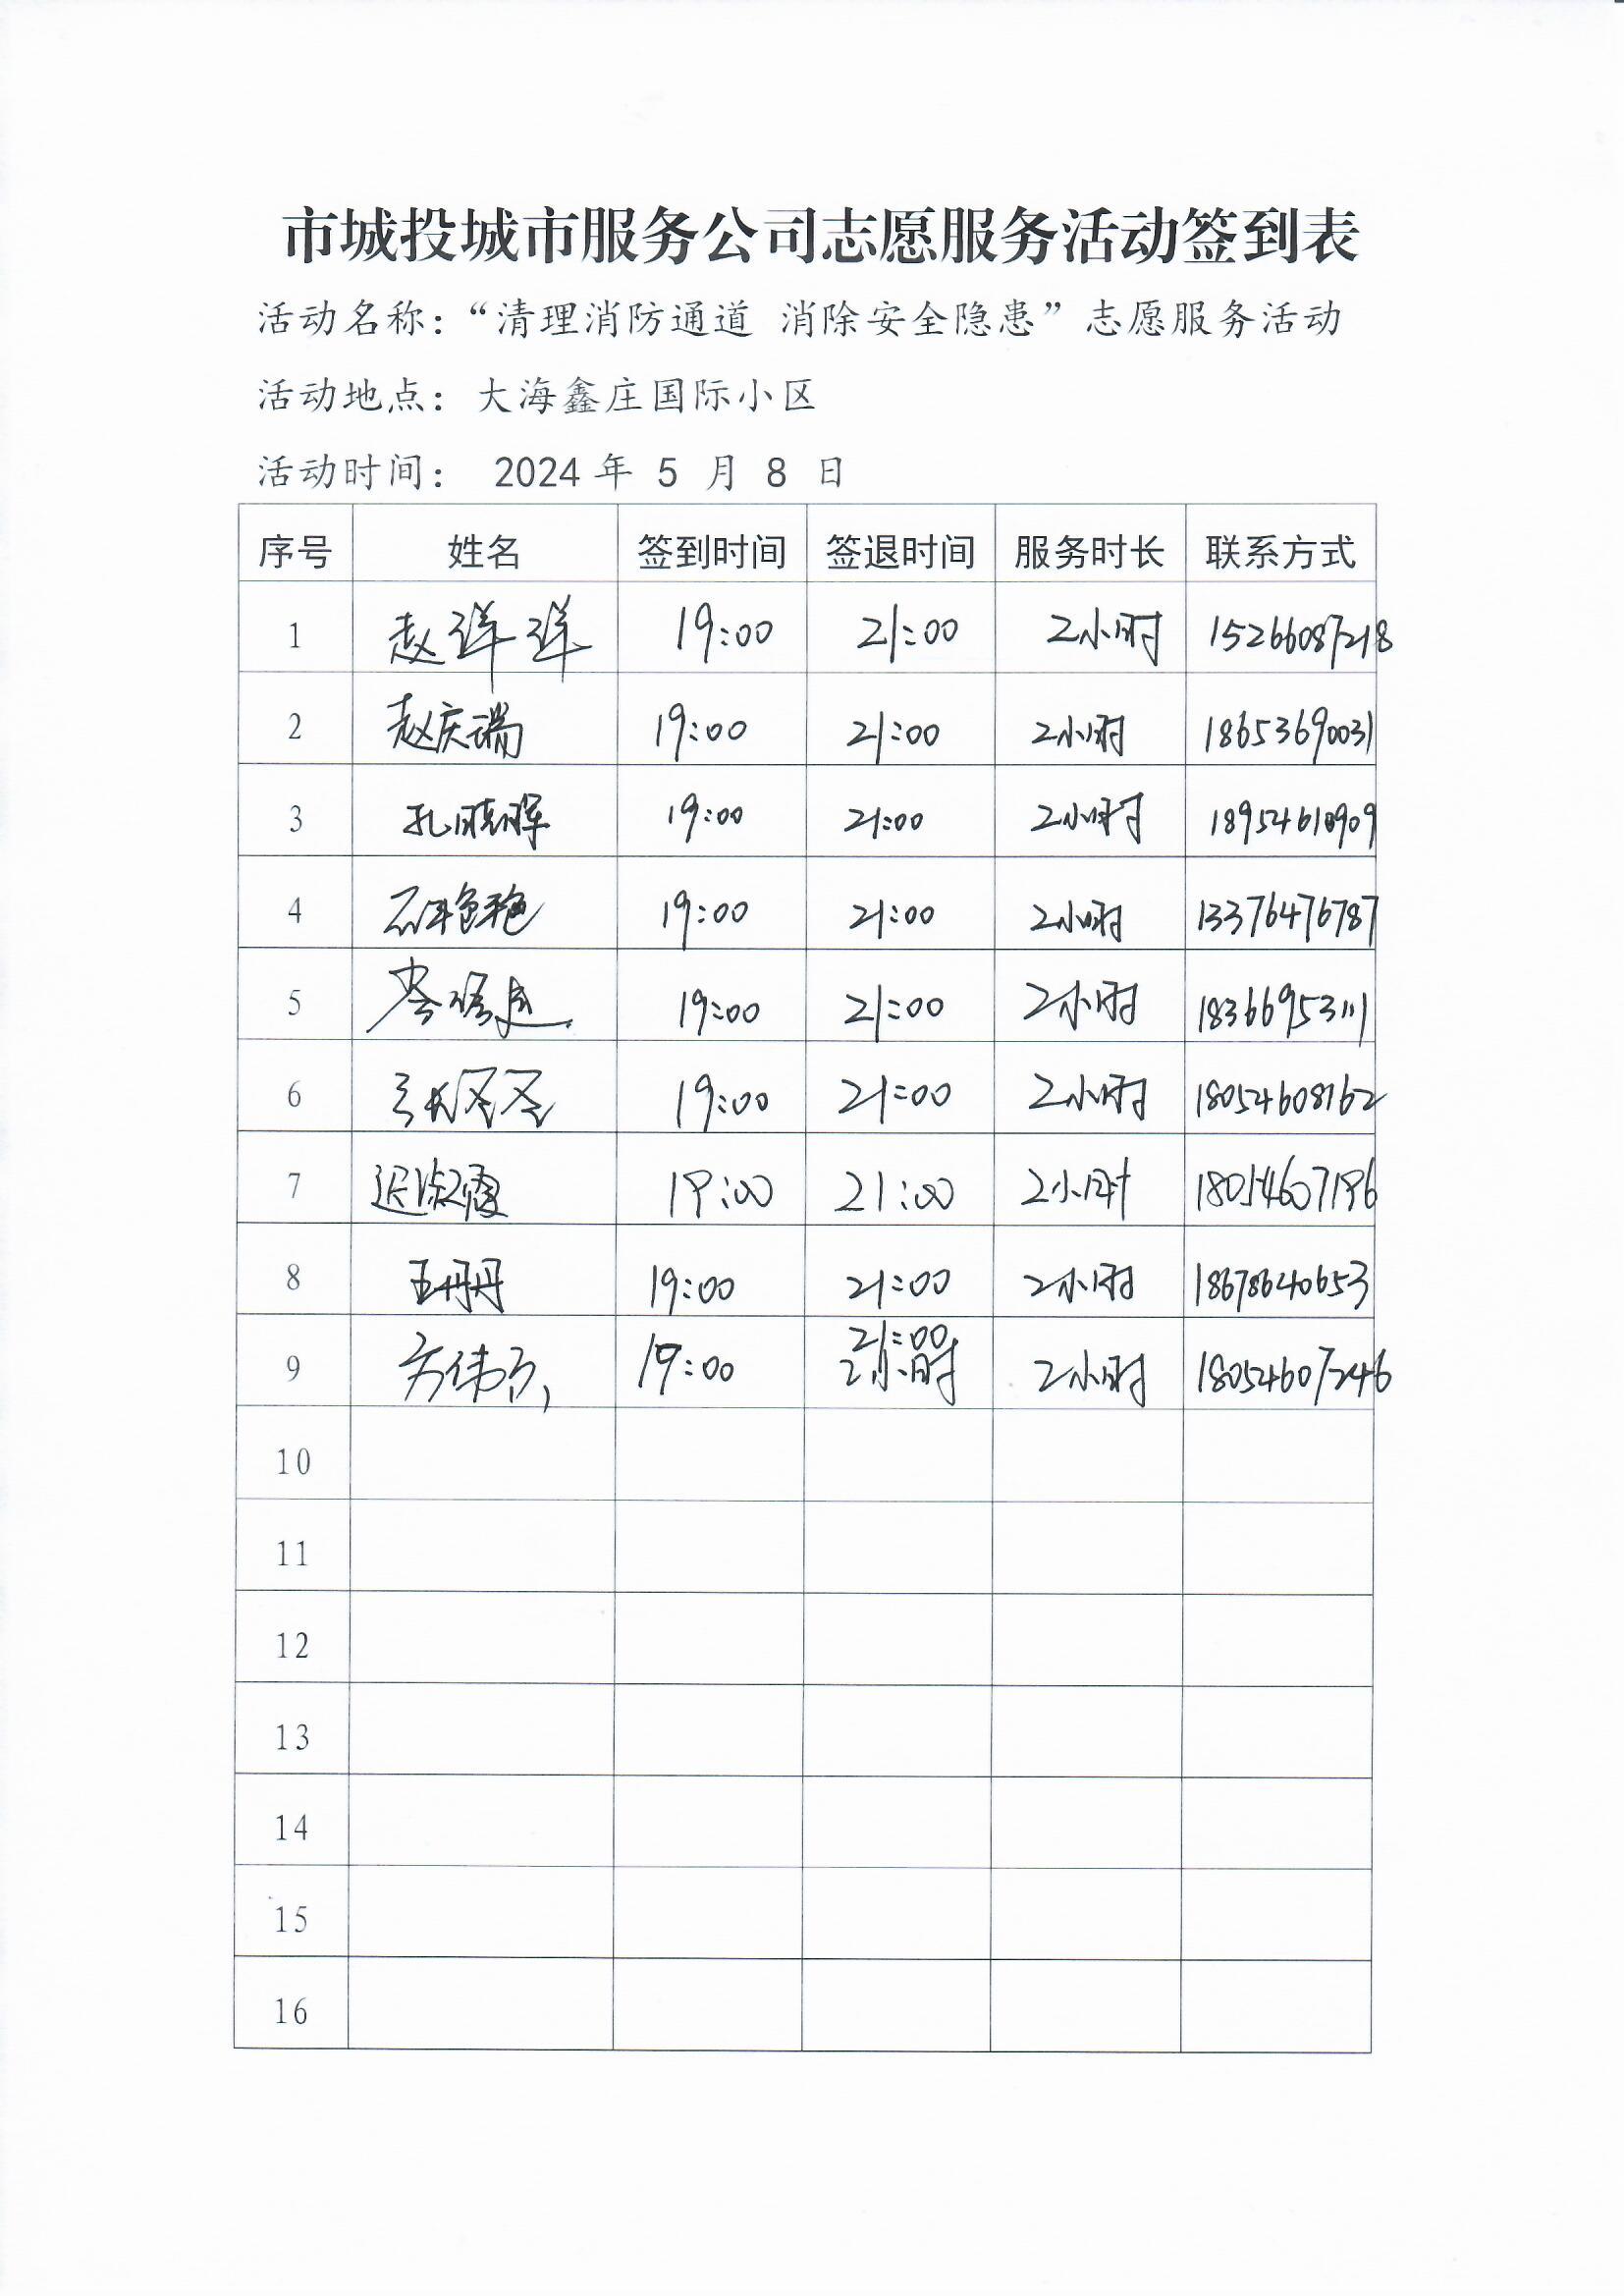 市城投城市服务公司志愿服务活动签到表
活动名称：“清理消防通道 消除安全隐患”志愿服务活动
活动地点： 大海鑫庄国际小区
活动时间： 2024 年 5 月 8 日
序号 姓名 签到时间 签退时间 服务时长 联系方式
1 赵洋洋 19:00 21:00 2小时 15266087218
2 赵庆瑞 19:00 21:00 2小时 18653690031
3 孔晓晖 19:00 21:00 2小时 18954610909
4 石艳艳 19:00 21:00 2小时 13376476787
5 19:00 21:00 2小时 18366953111
6 张圣圣 19:00 21:00 2小时 18054608162
7 迟淑霞 19:00 21:00 2小时 18054607196
8 王丹丹 19:00 21:00 2小时 18678640653
9 19:00 21:00 2小时 2小时 18054607246
10
11
12
13
14
15
16